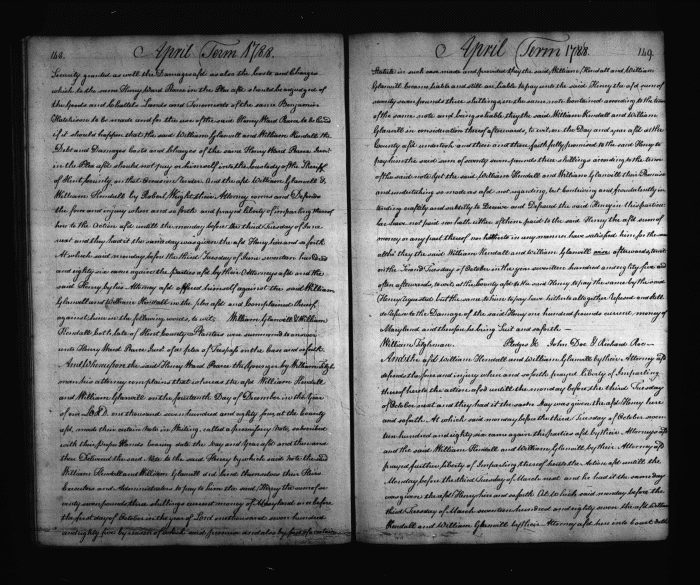 148. April Term 1788.
Severally granted as well the Damages afd as also the Costs and Charges
which to the same Henry Ward Pearce in the Plea afd should be adjudged of
the Goods and Chattels Lands and Tenements of the same Benjamin
Hutchison to be made and for the use of the said Henry Ward Pearce to be
if it should happen that the said William Glanvill and William Kendall the
Debt and Damages Costs and Charges of the same Henry Ward Pearce Junr
in the Plea afd should not pay or himself into the Custody of the Sheriff
of Kent County on that Occasion render And the afd William Glanvill &
William Kendall by Robert Wright their Attorney comes and Defends
the force and injury when and so forth and prayed Liberty of imparting thereof
here to the Action afd untill the monday before the third Tuesday of June
next and they had it the same day was given the afd Henry him and so forth
At which said monday before the third Tuesday of June seventeen hundred
and eighty six came again the Parties afd by their Attorneys afd and the
said Henry by his Attorney afd offered himself against the said William
Glanvill and William Kendall in the plea afd and Complained thereof
against them in the following words, to wit, William Glanvill & William
Kendall both late of Kent County Planters were summoned to answer
unto Henry Ward Pearce Junr of a plea of Trespass on the case and so forth
And Whereupon the said Henry Ward Pearce the Younger by William Tilgh
man his attorney complains that whereas the afd William Kendall
and William Glanvill on the fourteenth Day of December in the Year
of our Lord one thousand seven hundred and eighty four at the County
afd, made their certain Note in Writing, called a promissory Note, subscribed
with their proper Hands bearing date the Day and Year afd and then and
there Delivered the said Note to the said Henry by which said Note the said
William Kendall and William Glanvill did bind themselves their Heirs
Executors and Administrators to pay to him the said Henry the sum of se
venty seven pounds three shillings current money of Maryland on or before
the first day of October in the year of Lord one thousand seven hundred
and eighty five by reason of which said promise and also by force of a certain
April Term 1788. 149.
Statute in such case made and provided they the said William Kendall and William
Glanvill became liable and still are liable to pay unto the said Henry the afd sum of
seventy seven pounds three shillings, in the same note contained according to the tenor
of the same note and being so liable they the said William Kendall and William
Glanvill in consideration thereof afterwards, to wit, on the Day and year afd at the
County afd undertook and then and there faithfully promised to the said Henry to
pay him the said sum of seventy seven pounds three shillings according to the tenor
of the said note Yet the said William Kendall and William Glanvill their Promise
and undertaking so made as afd not regarding, but contriving and fraudulently in
tending craftily and subtilly to Deceive and Defraud the said Henry in this particu
lar have not paid nor hath either of them paid to the said Henry the afd sum of
money or any part thereof nor hitherto in any manner have satisfied him for the same
altho they the said William Kendall and William Glanvill were afterwards, to wit
on the second Tuesday of October in the year seventeen hundred and eighty five and
often afterwards, to wit at the County afd to the said Henry to pay the same by the said
Henry requested but the same to him to pay have hitherto altogether refused and still
do refuse to the Damage of the said Henry one hundred pounds current money of
Maryland and therefore he brings Suit and so forth —
William Tilghman. Pledges &c John Doe & Richard Roe —
And the afd William Kendall and William Glanvill by their Attorney afd
defends the force and injury when and so forth prayed Liberty of Imparting
thereof hereto the action afd untill the monday before the third Tuesday
of October next and they had it the same Day was given the afd Henry here
and so forth. At which said monday before the third Tuesday of October seven
teen hundred and eighty six came again the parties afd by their Attorneys afd
and the said William Kendall and William Glanvill, by their Attorney afd
prayed further Liberty of Imparting thereof hereto the Action afd untill the
Monday before the third Tuesday of March next and he had it the same day
was given the afd Henry here and so forth At which said monday before the
third Tuesday of March seventeen hundred and eighty seven the afd William
Kendall and William Glanvill by their Attorney afd here into court